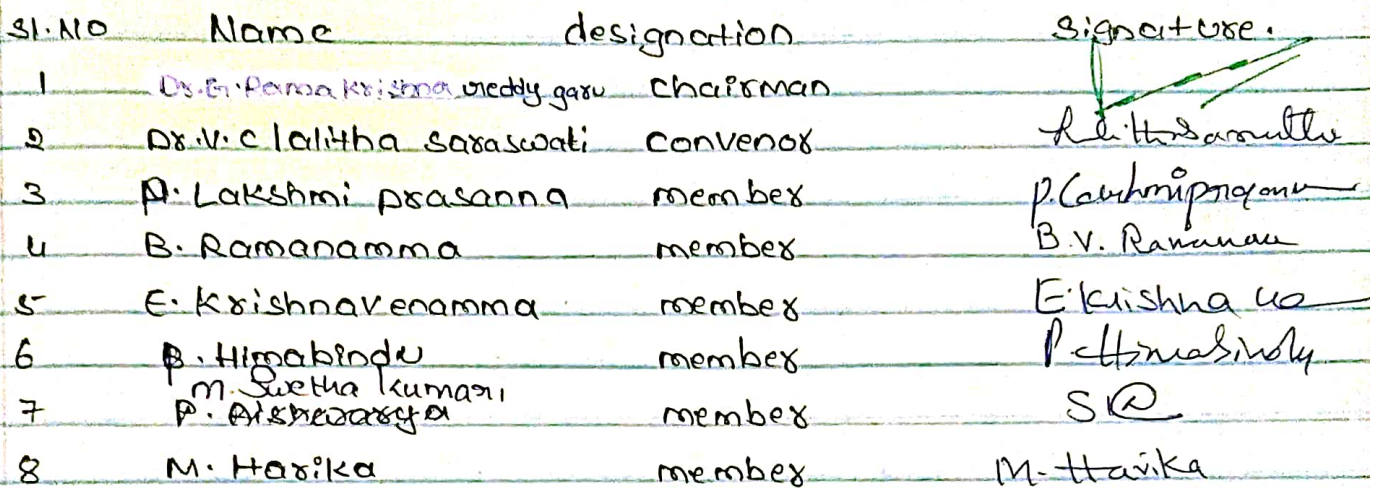 Sl.NO Name designation Signature.
1 Dr.G.Rama Krishna reddy garu Chairman
2 Dr.V.C lalitha saraswati convenor
3 P. Lakshmi prasanna member
4 B. Ramanamma member B.V. Ramanam
5 E. Krishnavenamma member E.Krishna ve
6 P. Himabindu member P. Himabindu
M. Swetha kumari
7 P. Aishwarya member
8 M. Harika member M. Harika